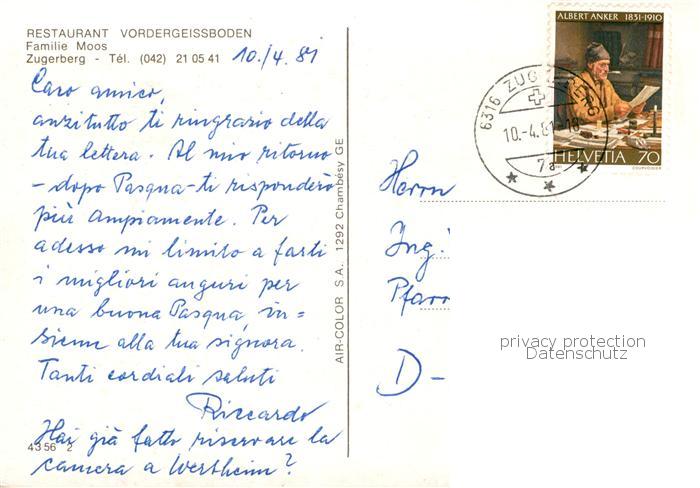 RESTAURANT VORDERGEISSBODEN
Familie Moos
Zugerberg - Tél. (042) 21 05 41
10./4.81
Caro amico,
anzitutto ti ringrazio della
tua lettera. Al mio ritorno
- dopo Pasqua - ti risponderò
più ampiamente. Per
adesso mi limito a farti
i migliori auguri per
una buona Pasqua, in-
sieme alla tua signora.
Tanti cordiali saluti
Riccardo
Hai già fatto riservare la
camera a Wertheim?
4356 2
AIR-COLOR S.A. 1292 Chambésy GE
ALBERT ANKER 1831-1910
HELVETIA 70
COURVOISIER
6316 ZUGERBERG
10.-4.81
7a
Herrn
Ing.
Pfarr
D-
privacy protection
Datenschutz